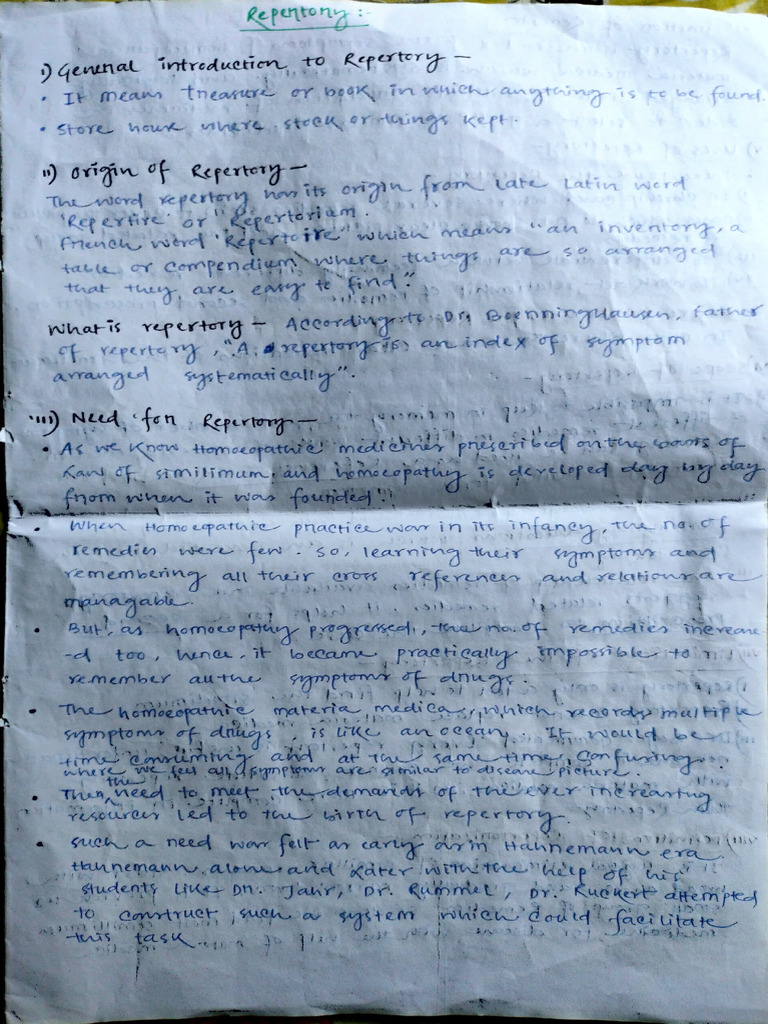 Repertory :
i) General introduction to Repertory —
• It means treasure or book, in which anything is to be found.
• Store house where stock or things kept.
ii) Origin of Repertory —
The word repertory has its origin from Late Latin word
'Repertire' or "Repertorium.
French word 'Repertoire" which means "an inventory, a
table or compendium where things are so arranged
that they are easy to find."
What is repertory — According to Dr. Boenninghausen, father
of repertory, "A repertory is an index of symptom
arranged systematically".
iii) Need for Repertory —
• As we know Homoeopathic medicines prescribed on the basis of
Law of similimum and homoeopathy is developed day by day
from when it was founded.
• When Homoeopathic practice was in its infancy, the no. of
remedies were few. So, learning their symptoms and
remembering all their cross references and relations are
managable.
• But, as homoeopathy progressed, the no. of remedies increase
-d too, hence, it became practically impossible to
remember all the symptoms of drugs.
• The homoeopathic materia medica, which records multiple
symptoms of drugs, is like an ocean. It would be
time consuming and at the same time, confusing
where we feel all symptoms are similar to disease picture.
• Then the need to meet the demands of the ever increasing
resources led to the birth of repertory.
• Such a need was felt as early as in Hahnemann era.
Hahnemann, alone and later with the help of his
students like Dr. Jahr, Dr. Rummel, Dr. Ruckert attempted
to construct such a system which could facilitate
this task.